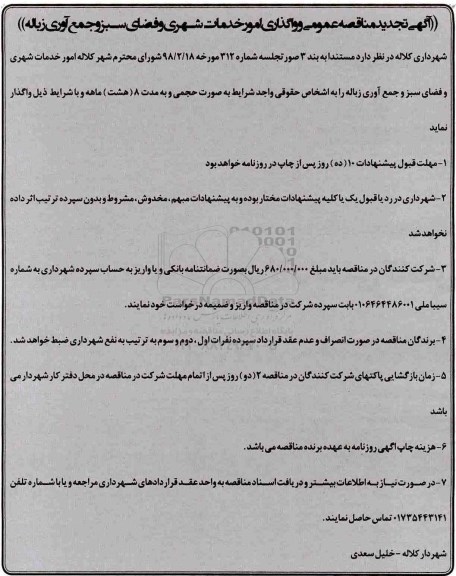 ((آگهی تجدید مناقصه عمومی و واگذاری امور خدمات شهری و فضای سبز و جمع آوری زباله))
شهرداری کلاله در نظر دارد مستندا به بند ۳ صورتجلسه شماره ۳۱۲ مورخه ۹۸/۲/۱۸ شورای محترم شهر کلاله امور خدمات شهری
و فضای سبز و جمع آوری زباله را به اشخاص حقوقی واجد شرایط به صورت حجمی و به مدت ۸ (هشت) ماهه و با شرایط ذیل واگذار
نماید
۱- مهلت قبول پیشنهادات ۱۰ (ده) روز پس از چاپ در روزنامه خواهد بود
۲- شهرداری در رد یا قبول یک یا کلیه پیشنهادات مختار بوده و به پیشنهادات مبهم، مخدوش، مشروط و بدون سپرده ترتیب اثر داده
نخواهد شد
۳- شرکت کنندگان در مناقصه باید مبلغ ۶۸۰/۰۰۰/۰۰۰ ریال بصورت ضمانتنامه بانکی و یا واریز به حساب سپرده شهرداری به شماره
سیبا ملی ۰۱۰۶۴۶۴۴۸۶۰۰۱ بابت سپرده شرکت در مناقصه واریز و ضمیمه درخواست خود نمایند.
۴- برندگان مناقصه در صورت انصراف و عدم عقد قرارداد سپرده نفرات اول، دوم و سوم به ترتیب به نفع شهرداری ضبط خواهد شد.
۵- زمان بازگشایی پاکتهای شرکت کنندگان در مناقصه ۲ (دو) روز پس از اتمام مهلت شرکت در مناقصه در محل دفتر کار شهردار می
باشد
۶- هزینه چاپ اگهی روزنامه به عهده برنده مناقصه می باشد.
۷- در صورت نیاز به اطلاعات بیشتر و دریافت اسناد مناقصه به واحد عقد قراردادهای شهرداری مراجعه و یا با شماره تلفن
۰۱۷۳۵۴۴۳۱۴۱ تماس حاصل نمایند.
شهردار کلاله - خلیل سعدی